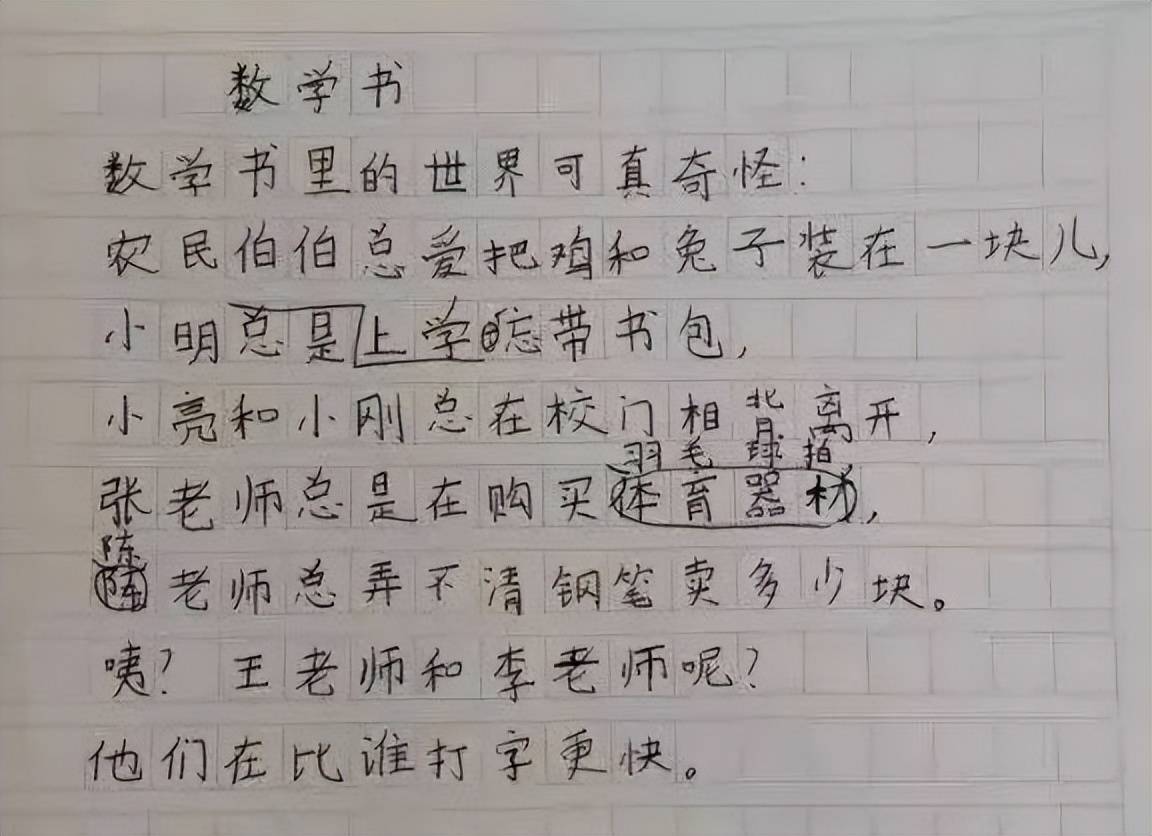 数学书
数学书里的世界可真奇怪：
农民伯伯总爱把鸡和兔子装在一块儿，
小明总是上学忘带书包，
小亮和小刚总在校门相背离开，
羽毛球拍
张老师总是在购买体育器材，
陈
陈老师总弄不清钢笔卖多少块。
咦？王老师和李老师呢？
他们在比谁打字更快。